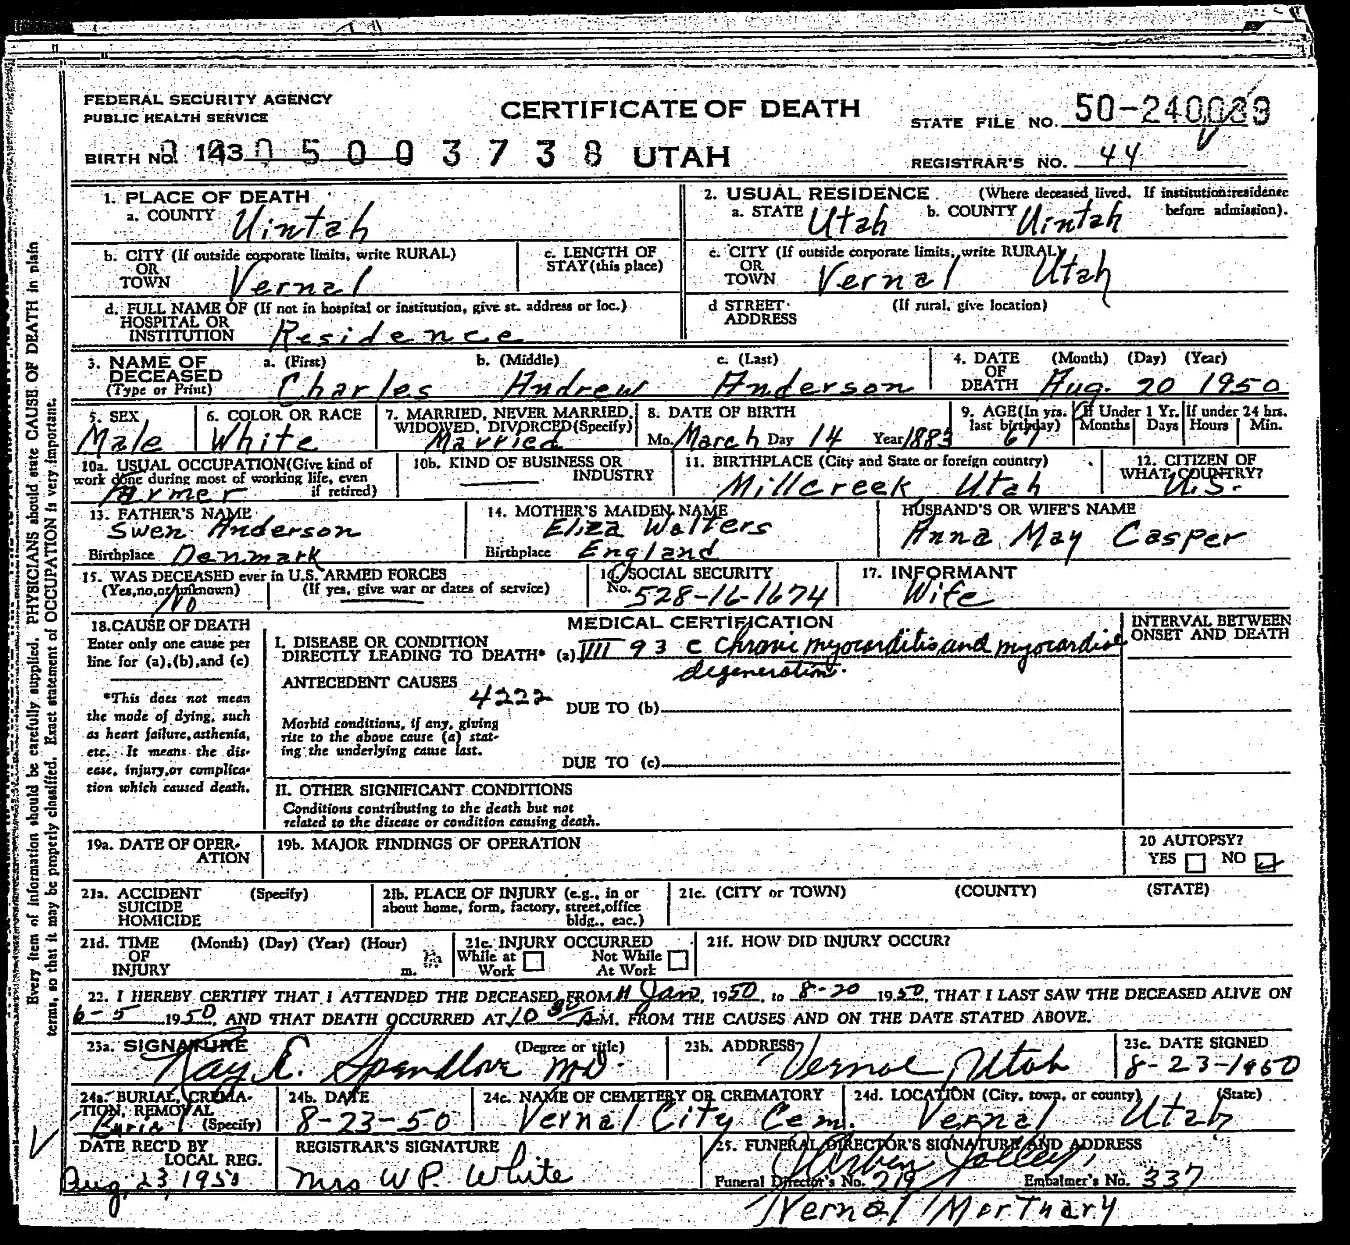 FEDERAL SECURITY AGENCY
PUBLIC HEALTH SERVICE
CERTIFICATE OF DEATH
STATE FILE NO. 50-240089
BIRTH NO. 143 0 5 0 0 3 7 3 8 UTAH
REGISTRAR'S NO. 44
1. PLACE OF DEATH
a. COUNTY Uintah
2. USUAL RESIDENCE (Where deceased lived. If institution: residence before admission).
a. STATE Utah b. COUNTY Uintah
b. CITY (If outside corporate limits, write RURAL)
OR
TOWN Vernal
c. LENGTH OF
STAY (this place)
c. CITY (If outside corporate limits, write RURAL)
OR
TOWN Vernal Utah
d. FULL NAME OF (If not in hospital or institution, give st. address or loc.)
HOSPITAL OR
INSTITUTION Residence
d STREET (If rural, give location)
ADDRESS
3. NAME OF
DECEASED
(Type or Print)
a. (First) b. (Middle) c. (Last)
Charles Andrew Anderson
4. DATE (Month) (Day) (Year)
OF
DEATH Aug. 20 1950
5. SEX
Male
6. COLOR OR RACE
White
7. MARRIED, NEVER MARRIED,
WIDOWED, DIVORCED (Specify)
Married
8. DATE OF BIRTH
Mo. March Day 14 Year 1883
9. AGE (In yrs.
last birthday) 67
If Under 1 Yr.
Months Days
If under 24 hrs.
Hours Min.
10a. USUAL OCCUPATION (Give kind of
work done during most of working life, even
if retired)
Farmer
10b. KIND OF BUSINESS OR
INDUSTRY
11. BIRTHPLACE (City and State or foreign country)
Millcreek Utah
12. CITIZEN OF
WHAT COUNTRY?
U.S.
13. FATHER'S NAME
Swen Anderson
Birthplace Denmark
14. MOTHER'S MAIDEN NAME
Eliza Walters
Birthplace England
HUSBAND'S OR WIFE'S NAME
Anna May Casper
15. WAS DECEASED ever in U.S. ARMED FORCES
(Yes, no, or unknown) (If yes, give war or dates of service)
No
16. SOCIAL SECURITY
No. 528-16-1674
17. INFORMANT
Wife
18. CAUSE OF DEATH
Enter only one cause per
line for (a), (b), and (c)
*This does not mean
the mode of dying, such
as heart failure, asthenia,
etc. It means the dis-
ease, injury, or complica-
tion which caused death.
MEDICAL CERTIFICATION
INTERVAL BETWEEN
ONSET AND DEATH
I. DISEASE OR CONDITION
DIRECTLY LEADING TO DEATH* (a) IIII 93 c Chronic myocarditis and myocardial
degeneration.
ANTECEDENT CAUSES
4222
DUE TO (b)
Morbid conditions, if any, giving
rise to the above cause (a) stat-
ing the underlying cause last.
DUE TO (c)
II. OTHER SIGNIFICANT CONDITIONS
Conditions contributing to the death but not
related to the disease or condition causing death.
19a. DATE OF OPER-
ATION
19b. MAJOR FINDINGS OF OPERATION
20 AUTOPSY?
YES NO
21a. ACCIDENT (Specify)
SUICIDE
HOMICIDE
21b. PLACE OF INJURY (e.g., in or
about home, form, factory, street, office
bldg., eac.)
21c. (CITY or TOWN) (COUNTY) (STATE)
21d. TIME (Month) (Day) (Year) (Hour)
OF
INJURY m.
21e. INJURY OCCURRED
While at Not While
Work At Work
21f. HOW DID INJURY OCCUR?
22. I HEREBY CERTIFY THAT I ATTENDED THE DECEASED FROM 11 Jan, 1950, to 8-20 1950, THAT I LAST SAW THE DECEASED ALIVE ON
6-5 1950, AND THAT DEATH OCCURRED AT 10 30 A.M. FROM THE CAUSES AND ON THE DATE STATED ABOVE.
23a. SIGNATURE (Degree or title)
Ray E. Spendlove MD.
23b. ADDRESS
Vernal, Utah
23c. DATE SIGNED
8-23-1950
24a. BURIAL, CREMA-
TION, REMOVAL
(Specify)
Burial
24b. DATE
8-23-50
24c. NAME OF CEMETERY OR CREMATORY
Vernal City Cem.
24d. LOCATION (City, town, or county) (State)
Vernal Utah
DATE REC'D BY
LOCAL REG.
Aug, 23, 1950
REGISTRAR'S SIGNATURE
Mrs W P. White
25. FUNERAL DIRECTOR'S SIGNATURE AND ADDRESS
Funeral Director's No. 719 Embalmer's No. 337
Vernal Mortuary
Every item of information should be carefully supplied. PHYSICIANS should state CAUSE OF DEATH in plain
terms, so that it may be properly classified. Exact statement of OCCUPATION is very important.